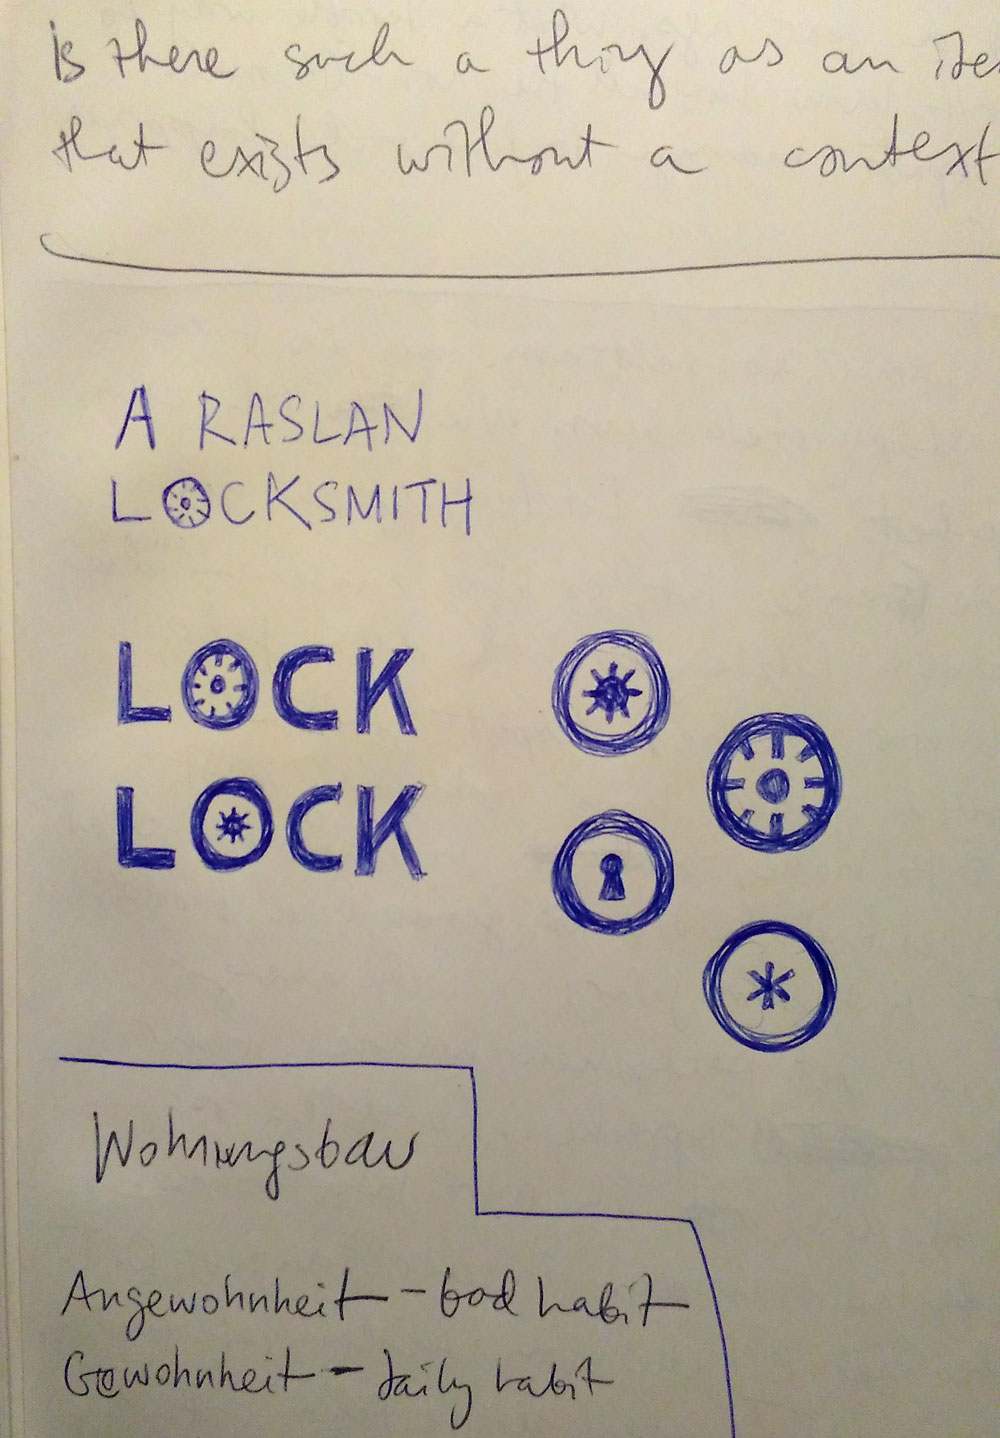 is there such a thing as an
that exists without a context
A RASLAN
LOCKSMITH
LOCK
LOCK
Wohnungsbau
Angewohnheit - bad habit
Gewohnheit - daily habit